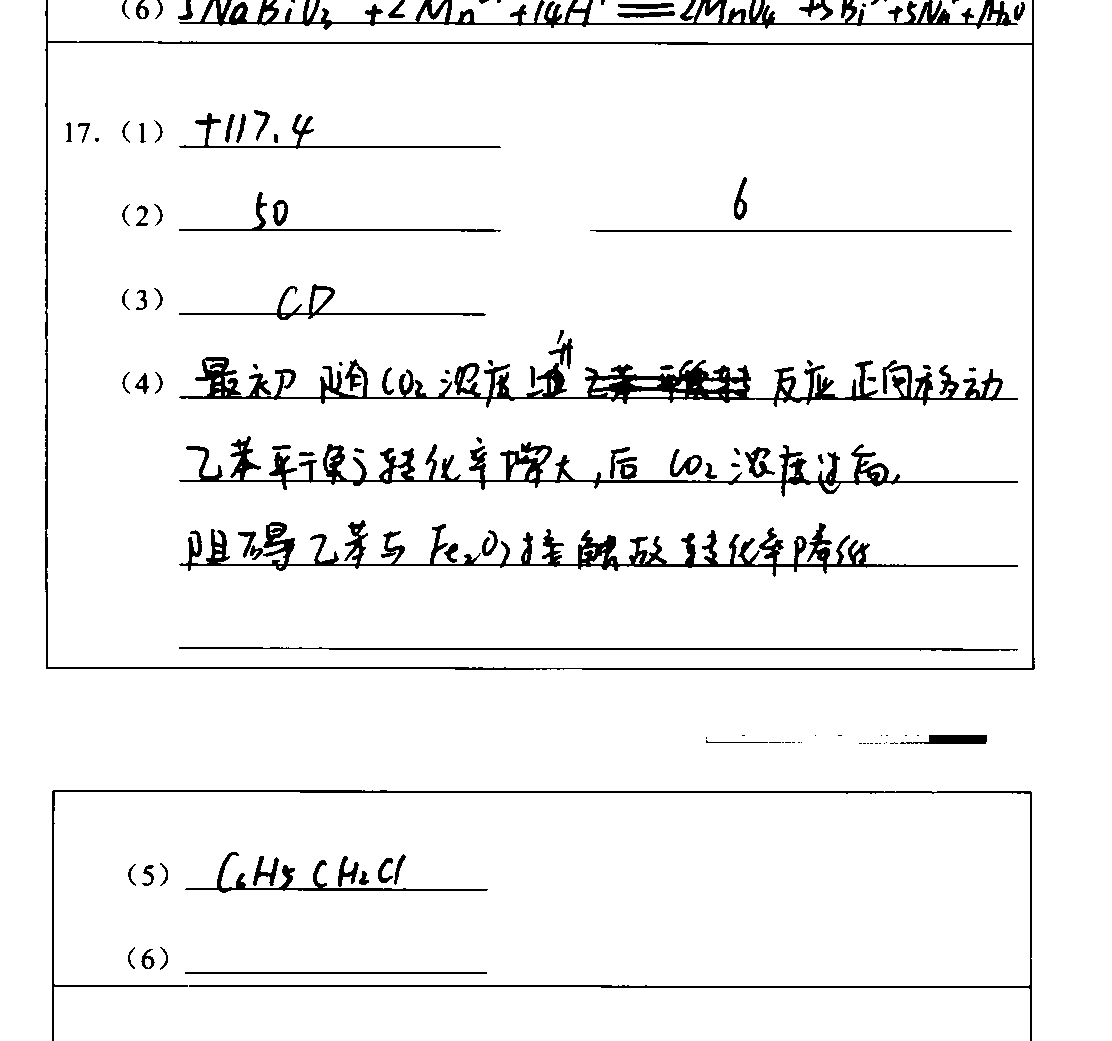 (6) 5NaBiO₃ +2Mn²⁺+14H⁺══2MnO₄⁻+5Bi³⁺+5Na⁺+7H₂O
17. (1) +117.4
(2) 50 6
(3) CD
(4) 最初 随CO₂浓度 升 反应正向移动
乙苯平衡转化率增大,后 CO₂浓度过高,
阻碍乙苯与 Fe₂O₃接触故转化率降低
(5) C₆H₅CH₂Cl
(6)